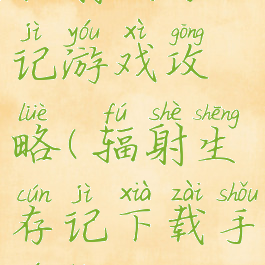 jì yóu xì gōng
记游戏攻
lüè fú shè shēng
略(辐射生
cún jì xià zài shǒu
存记下载手